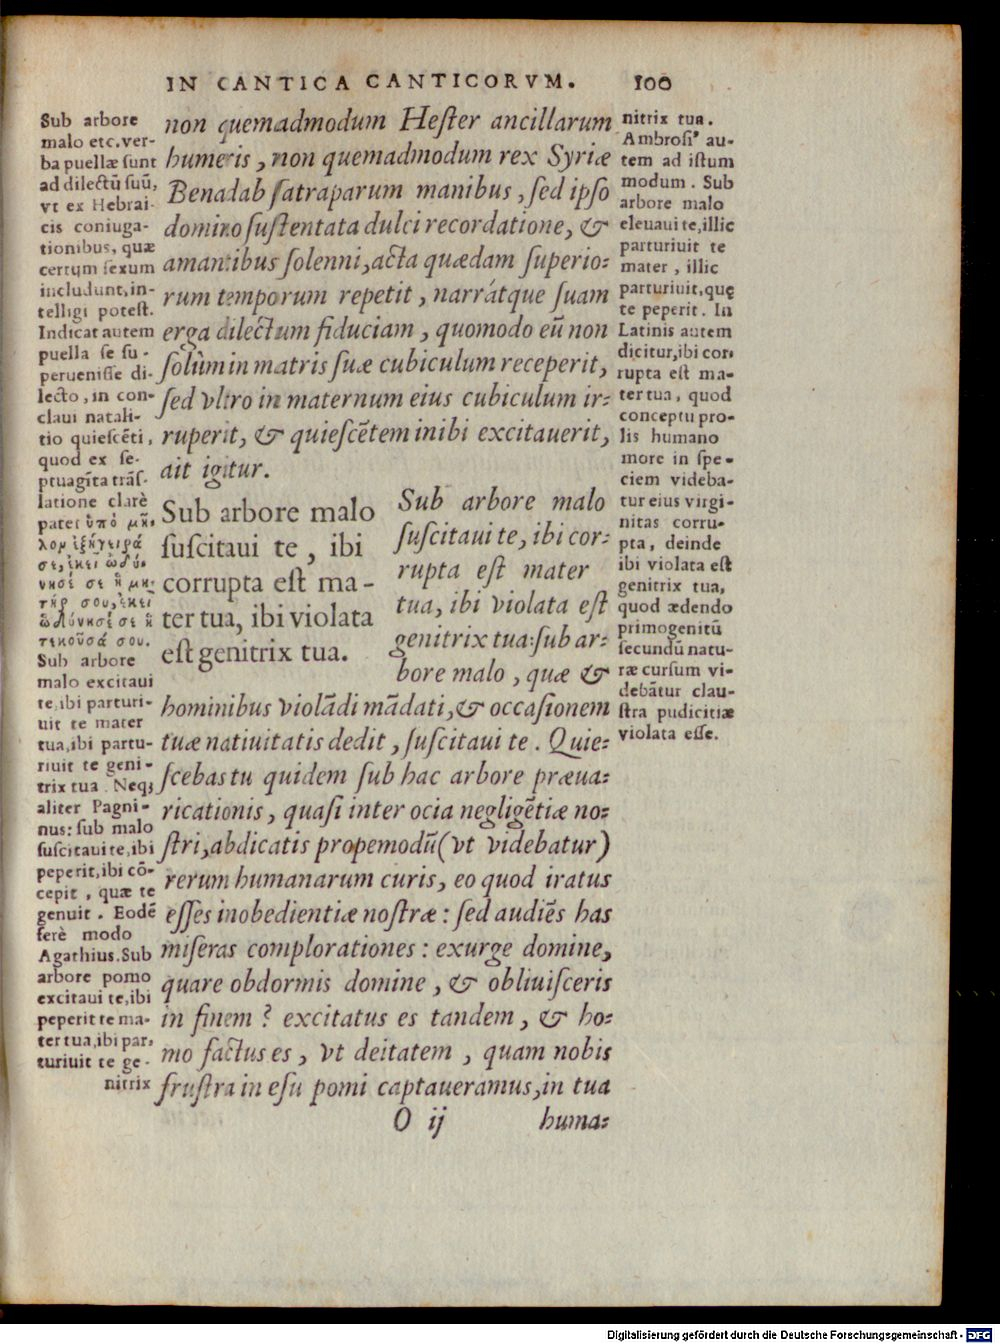 IN CANTICA CANTICORVM. 100
Sub arbore
malo etc. ver-
ba puellæ sunt
ad dilectū suū,
vt ex Hebrai-
cis coniuga-
tionibus, quæ
certum sexum
includunt, in-
telligi potest.
Indicat autem
puella se su-
peruenisse di-
lecto, in con-
claui natali-
tio quiescēti,
quod ex se-
ptuagīta trās-
latione clarè
patet ὑπὸ μῆ-
λον ἐξήγειρά
σε, ἐκεῖ ὠδί-
νησέ σε ἡ μή-
τηρ σου, ἐκεῖ
ὠδίνησέ σε ἡ
τεκοῦσά σου.
Sub arbore
malo excitaui
te, ibi parturi-
uit te mater
tua, ibi partu-
riuit te geni-
trix tua. Neqꝫ
aliter Pagni-
nus: sub malo
suscitaui te, ibi
peperit, ibi cō-
cepit, quæ te
genuit. Eodē
ferè modo
Agathius. Sub
arbore pomo
excitaui te, ibi
peperit te ma-
ter tua, ibi par-
turiuit te ge-
nitrix
non quemadmodum Hester ancillarum
humeris, non quemadmodum rex Syriæ
Benadab satraparum manibus, sed ipso
domino sustentata dulci recordatione, &
amantibus solenni, acta quædam superio-
rum temporum repetit, narrátque suam
erga dilectum fiduciam, quomodo eū non
solùm in matris suæ cubiculum receperit,
sed vltro in maternum eius cubiculum ir-
ruperit, & quiescētem inibi excitauerit,
ait igitur.
Sub arbore malo
suscitaui te, ibi
corrupta est ma-
ter tua, ibi violata
est genitrix tua.
Sub arbore malo
suscitaui te, ibi cor-
rupta est mater
tua, ibi violata est
genitrix tua: sub ar-
bore malo, quæ &
hominibus violādi mādati, & occasionem
tuæ natiuitatis dedit, suscitaui te. Quie-
scebas tu quidem sub hac arbore præua-
ricationis, quasi inter ocia negligētiæ no-
stri, abdicatis propemodū (vt videbatur)
rerum humanarum curis, eo quod iratus
esses inobedientiæ nostræ: sed audiēs has
miseras complorationes: exurge domine,
quare obdormis domine, & obliuisceris
in finem? excitatus es tandem, & ho-
mo factus es, vt deitatem, quam nobis
frustra in esu pomi captaueramus, in tua
O ij huma-
nitrix tua.
Ambrosi⁹ au-
tem ad istum
modum. Sub
arbore malo
eleuaui te, illic
parturiuit te
mater, illic
parturiuit, quę
te peperit. In
Latinis autem
dicitur, ibi cor-
rupta est ma-
ter tua, quod
conceptu pro-
lis humano
more in spe-
ciem videba-
tur eius virgi-
nitas corru-
pta, deinde
ibi violata est
genitrix tua,
quod ædendo
primogenitū
secundū natu-
ræ cursum vi-
debātur clau-
stra pudicitiæ
violata esse.
Digitalisierung gefördert durch die Deutsche Forschungsgemeinschaft - DFG